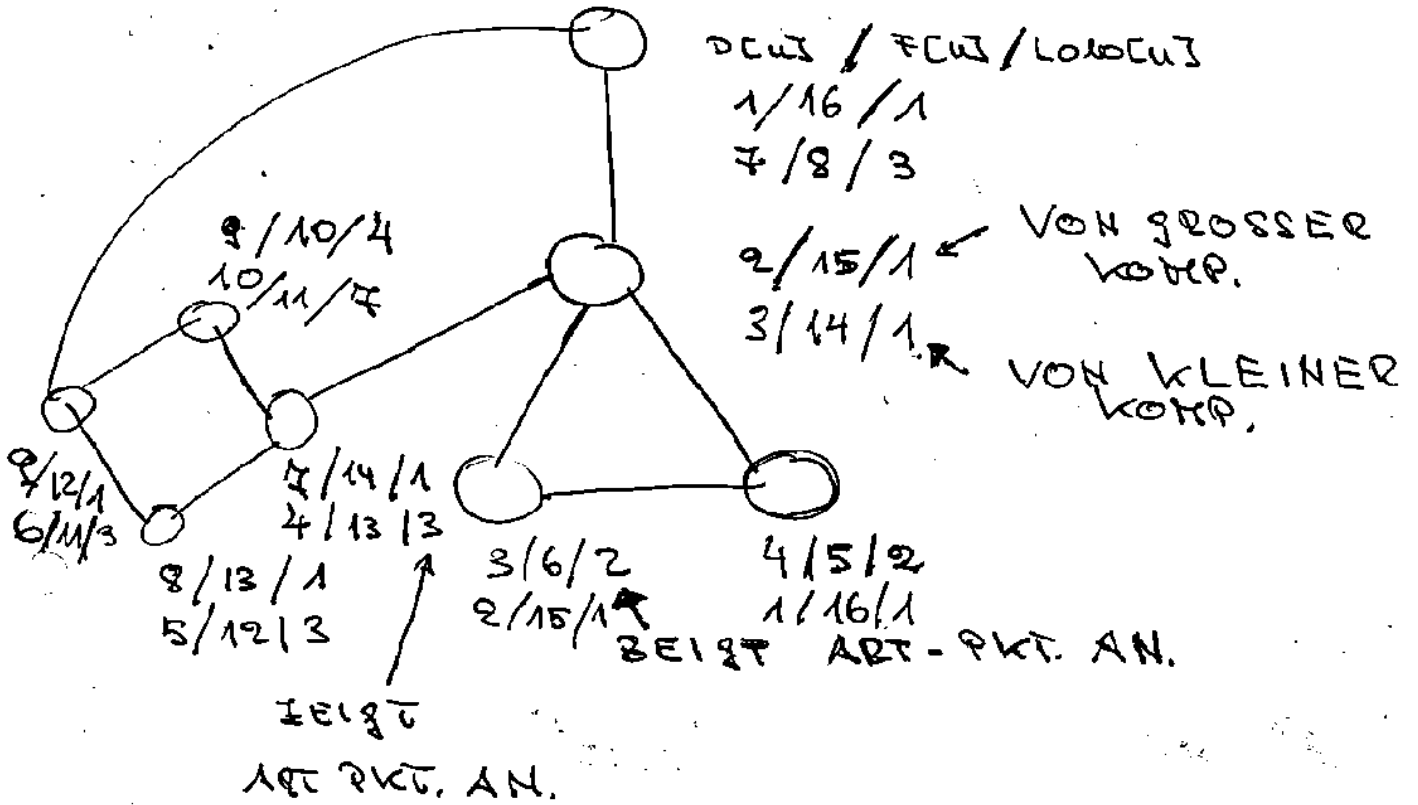 D[u] / F[u] / Low[u]
1/16/1
7/8/3
2/15/1 ← VON GROSSER
KOMP.
3/14/1 ← VON KLEINER
KOMP.
9/10/4
10/11/7
9/12/1
6/11/3
8/13/1
5/12/3
7/14/1
4/13/3
3/6/2
2/15/1
4/5/2
1/16/1
ZEIGT ART-PKT. AN.
ZEIGT
ART PKT. AN.